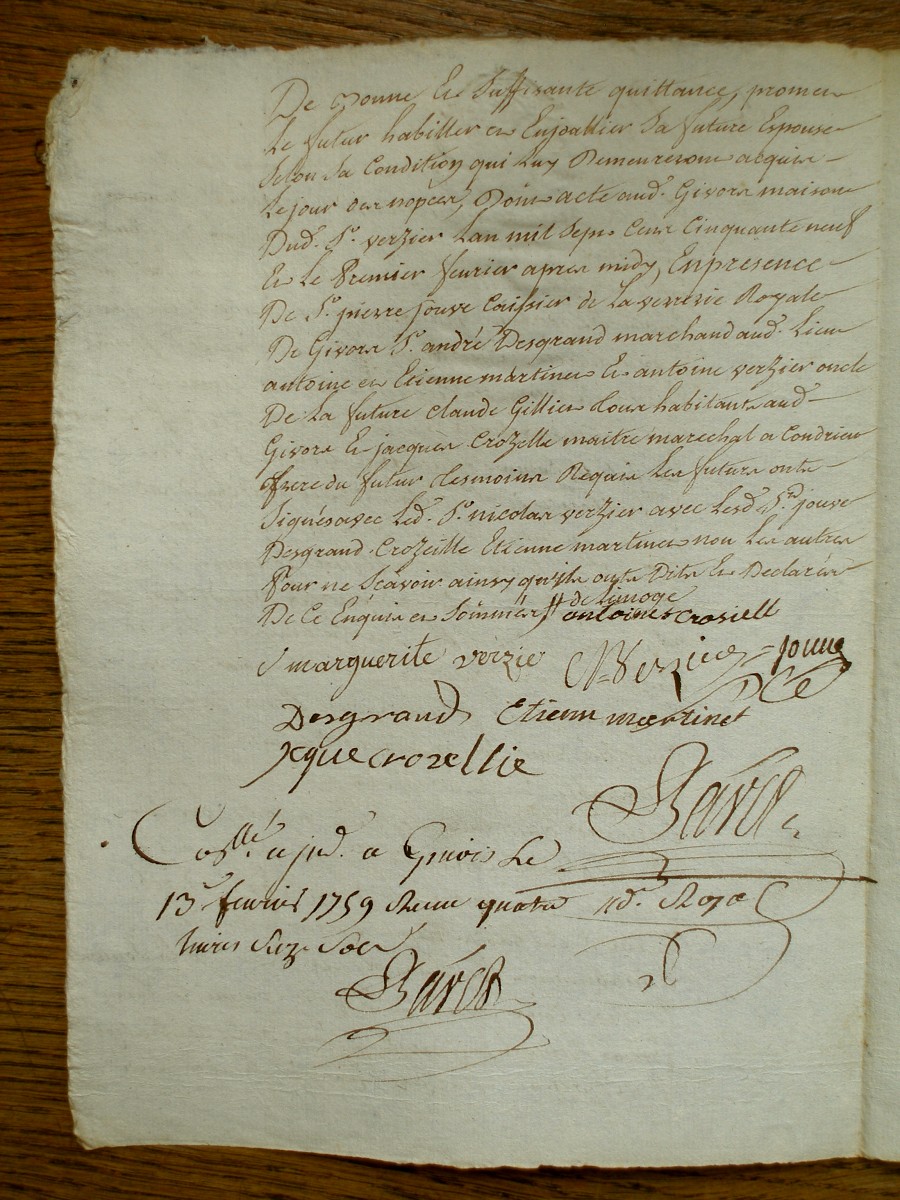 De bonne Et Suffisante quittance, promet
Le futur habiller et Enjoallier Sa future Espouse
Selon Sa Condition qui Luy Demeureront acquis
Le jour des nopces, Dont acte aud. Givors maison
Dud. Sr. verzier Lan mil Sept Cent Cinquante neuf
Et Le Premier fevrier apres midy, En presence
De Sr. pierre jouve Caissier de La verrerie Royale
De Givors Sr. andré Desgrand marchand aud. Lieu
antoine et Etienne martinet Et antoine verzier oncle
De La future Claude Gillier tous habitants aud.
Givors Et jacques Crozelle maitre marechal a Condrieu
frere du futur tesmoins Requis Les futurs onts
Signés avec Led. Sr. nicolas verzier avec Lesd. Srs. jouve
Desgrand Crozeille Etienne martinet non Les autres
Pour ne Scavoir ainsy qu'ils onts Dits Et Declarés
De Ce Enquis et Sommés
antoine crosiell
marguerite vérzie N Verzier jouve
Desgrand Etienne martinet
jaque crozellie
Collé. a Givors Le
13e fevrier 1759 Receu quatre
livres Seize Sols